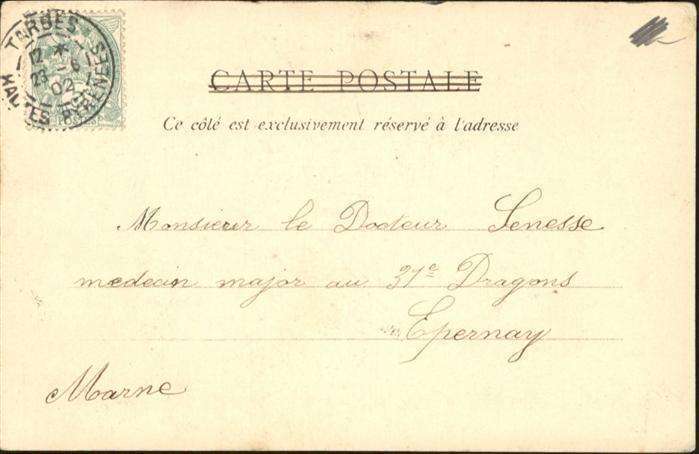 TARBES
12 * 
23 - 6
02
HAUTES PYRENEES
CARTE POSTALE
Ce côté est exclusivement réservé à l'adresse
Monsieur le Docteur Senesse
medecin major au 31e Dragons
Epernay
Marne